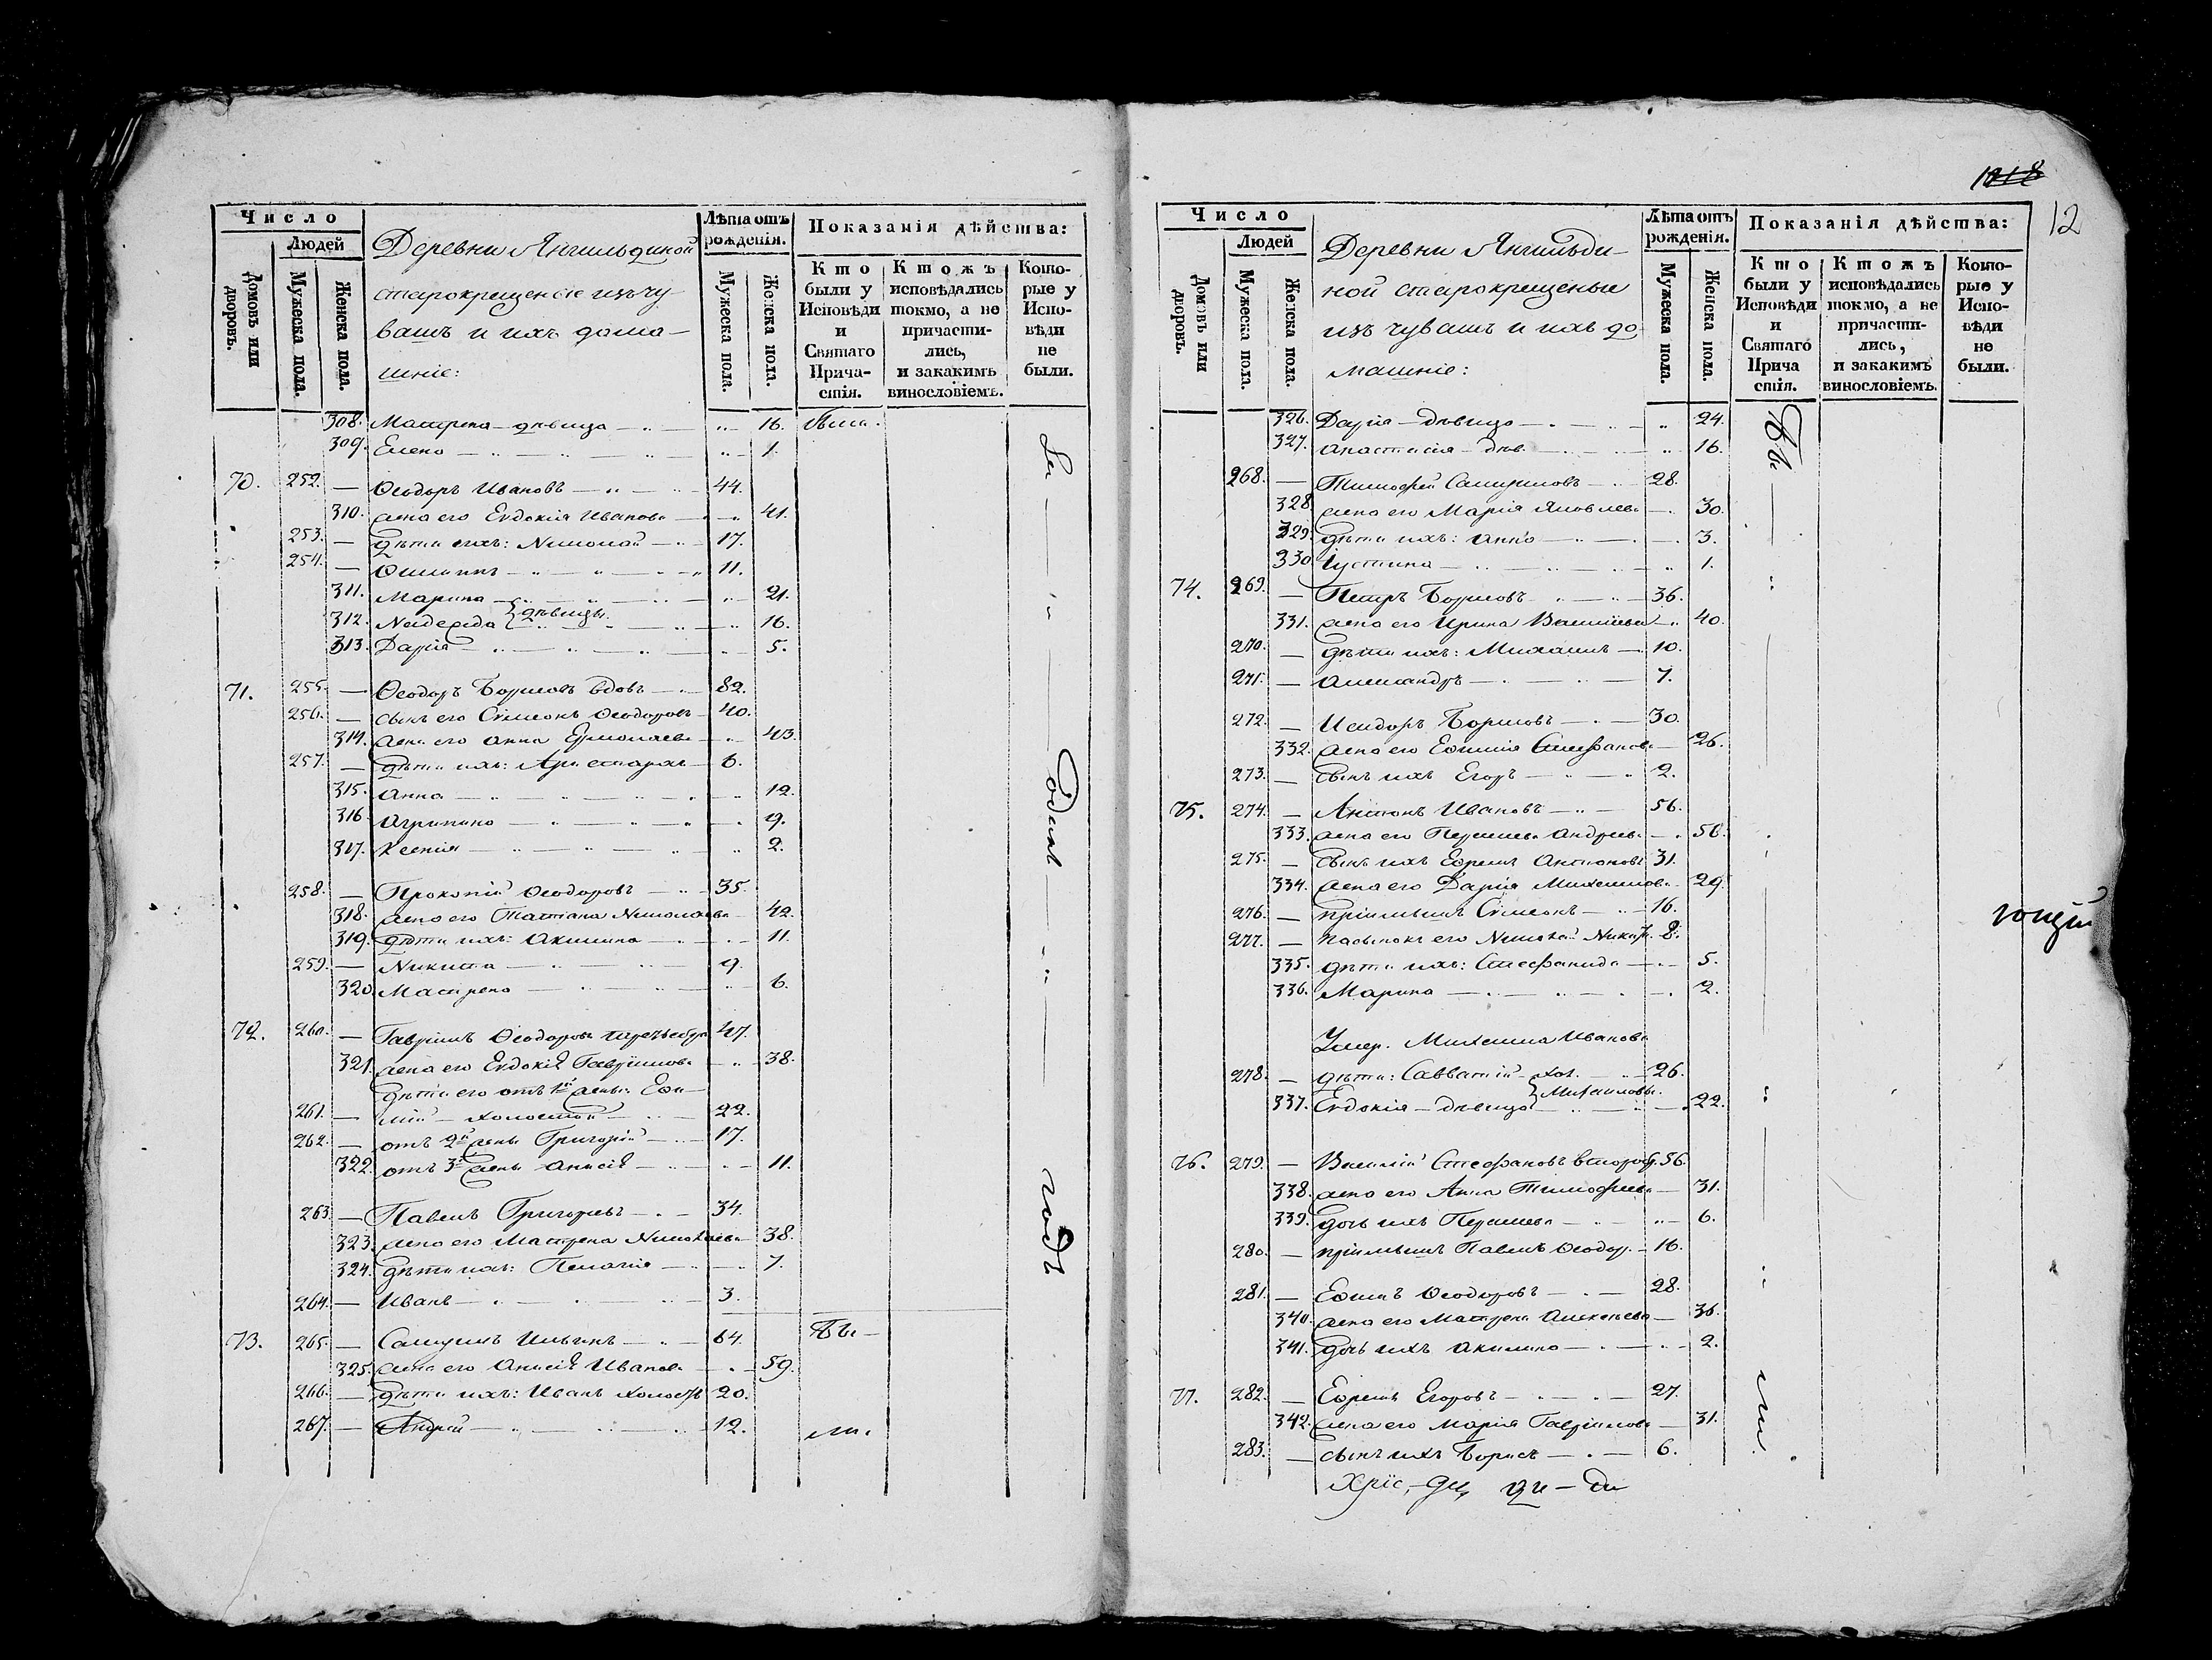 Число
Людей
Домовъ или дворовъ.
Мужеска пола.
Женска пола.
Деревни Янгильдиной
старокрещеные изъ чу-
вашъ и ихъ дома-
шніе:
Лѣта отъ рожденія.
Мужеска пола.
Женска пола.
Показанія дѣйства:
Кто были у Исповѣди и Святаго Прича-стія.
Ктожъ исповѣдались токмо, а не причасти-лись, и закакимъ винословіемъ.
Кото-рые у Испо-вѣди не были.
308. Матрена дѣвица 16.
309. Елена 1.
70. 252. — Ѳеодоръ Ивановъ 44.
310. жена его Евдокія Иванова 41.
253. — дѣти ихъ: Николай 17.
254. — 11.
311. Марина 21.
312. Надежда } дѣвицы. 16.
313. Дарія 5.
71. 255. — Ѳеодоръ Борисовъ вдовъ 82.
256. — сынъ его Сѵмеонъ Ѳеодоровъ 40.
314. жена его Анна Ермолаева 43.
257. — дѣти ихъ: Аристархъ 6.
315. Анна 12.
316. Агрипина 9.
317. Ксенія 2.
258. — Прокопій Ѳеодоровъ 35.
318. жена его Татіана Николаева 42.
319. дѣти ихъ: Акилина 11.
259. — Никита 9.
320. Матрена 6.
72. 260. — Гавріилъ Ѳеодоровъ 47.
321. жена его Евдокія Гавріилова 38.
дѣти его отъ 1й жены: Еѳи-
261. — мій холостой 22.
262. — отъ 2й жены Григорій 17.
322. отъ 3й жены Анисія 11.
263. — Павелъ Григорьевъ 34.
323. жена его Матрена Николаева 38.
324. дѣти ихъ: Пелагія 7.
264. — Иванъ 3.
73. 265. — Самуилъ Ильинъ 64. Бы-
325. жена его Анисія Иванова 59.
266. — дѣти ихъ: Иванъ холостъ 20.
267. — Андрей 12. ли.
Одинъ
годъ
12
Число
Людей
Домовъ или дворовъ.
Мужеска пола.
Женска пола.
Деревни Янгильди-
ной старокрещеные
изъ чувашъ и ихъ до
машніе:
Лѣта отъ рожденія.
Мужеска пола.
Женска пола.
Показанія дѣйства:
Кто были у Исповѣди и Святаго Прича стія.
Ктожъ исповѣдались токмо, а не причасти-лись, и закакимъ винословіемъ.
Кото-рые у Испо-вѣди не были.
326. Дарія — дѣвица 24. Бы
327. Анастасія — дѣв. 16.
268. — Тимоѳей Самуиловъ 28.
328. жена его Марія Яковлева 30.
329. дѣти ихъ: Анна 3.
330. Іустина 1.
74. 269. — Петръ Борисовъ 36.
331. жена его Ирина Васильева 40.
270. — дѣти ихъ: Михаилъ 10.
271. — Александръ 7.
272. — Исидоръ Борисовъ 30.
332. жена его Еѳимія Стефанова 26.
273. — сынъ ихъ Егоръ 2.
75. 274. — Антонъ Ивановъ 56.
333. жена его Андреева 56.
275. — сынъ ихъ Ефремъ Антоновъ 31.
334. жена его Дарія Михаилова 29.
276. — пріимышъ Сѵмеонъ 16.
277. — пасынокъ его Николай Никиф. 8.
335. дѣти ихъ: Стефанида 5.
336. Марина 2.
Умер. Михаила Иванова
278. — дѣти: Савватій хол. 26.
337. Евдокія — дѣвица } Михаиловы. 22.
76. 279. — Василій Стефановъ 56.
338. жена его Анна Тимофеева 31.
339. дочь ихъ 6.
280. — пріимышъ Павелъ Ѳеодор. 16.
281. — Еѳимъ Ѳеодоровъ 28.
340. жена его Матрена Алексѣева 36.
341. дочь ихъ Акилина 2.
77. 282. — Ефремъ Егоровъ 27.
342. жена его Марія Гавріилова 31. ли.
283. — сынъ ихъ Борисъ 6.